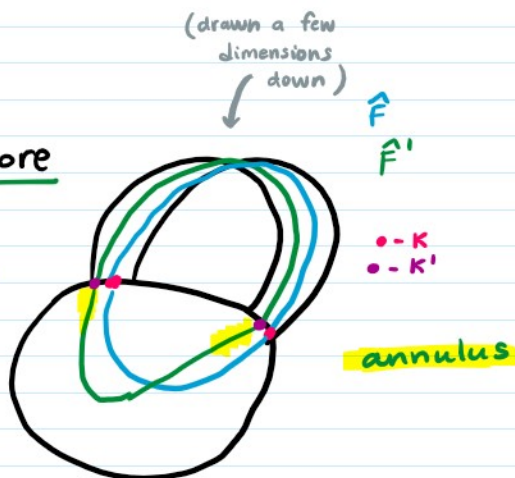 (drawn a few
dimensions
down)
F̂
F̂'
ore
• - K
• - K'
annulus